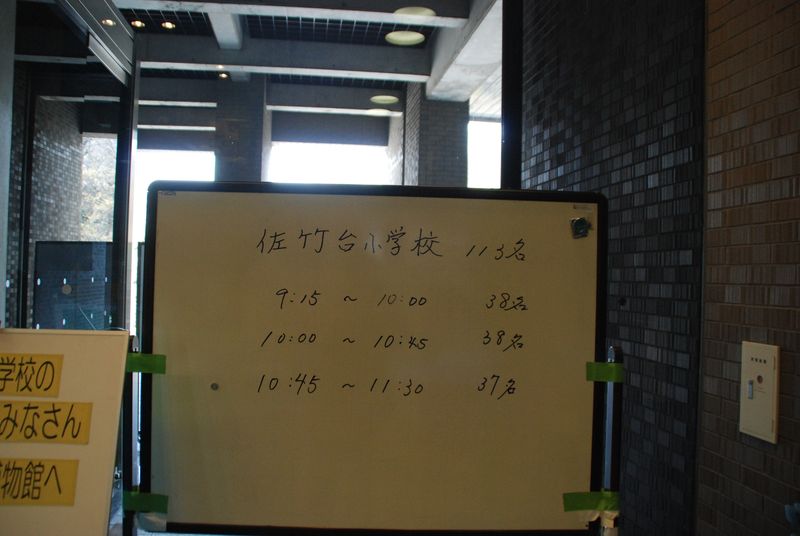 佐竹台小学校 113名
9:15 ~ 10:00 38名
10:00 ~ 10:45 38名
10:45 ~ 11:30 37名
学校の
みなさん
物館へ